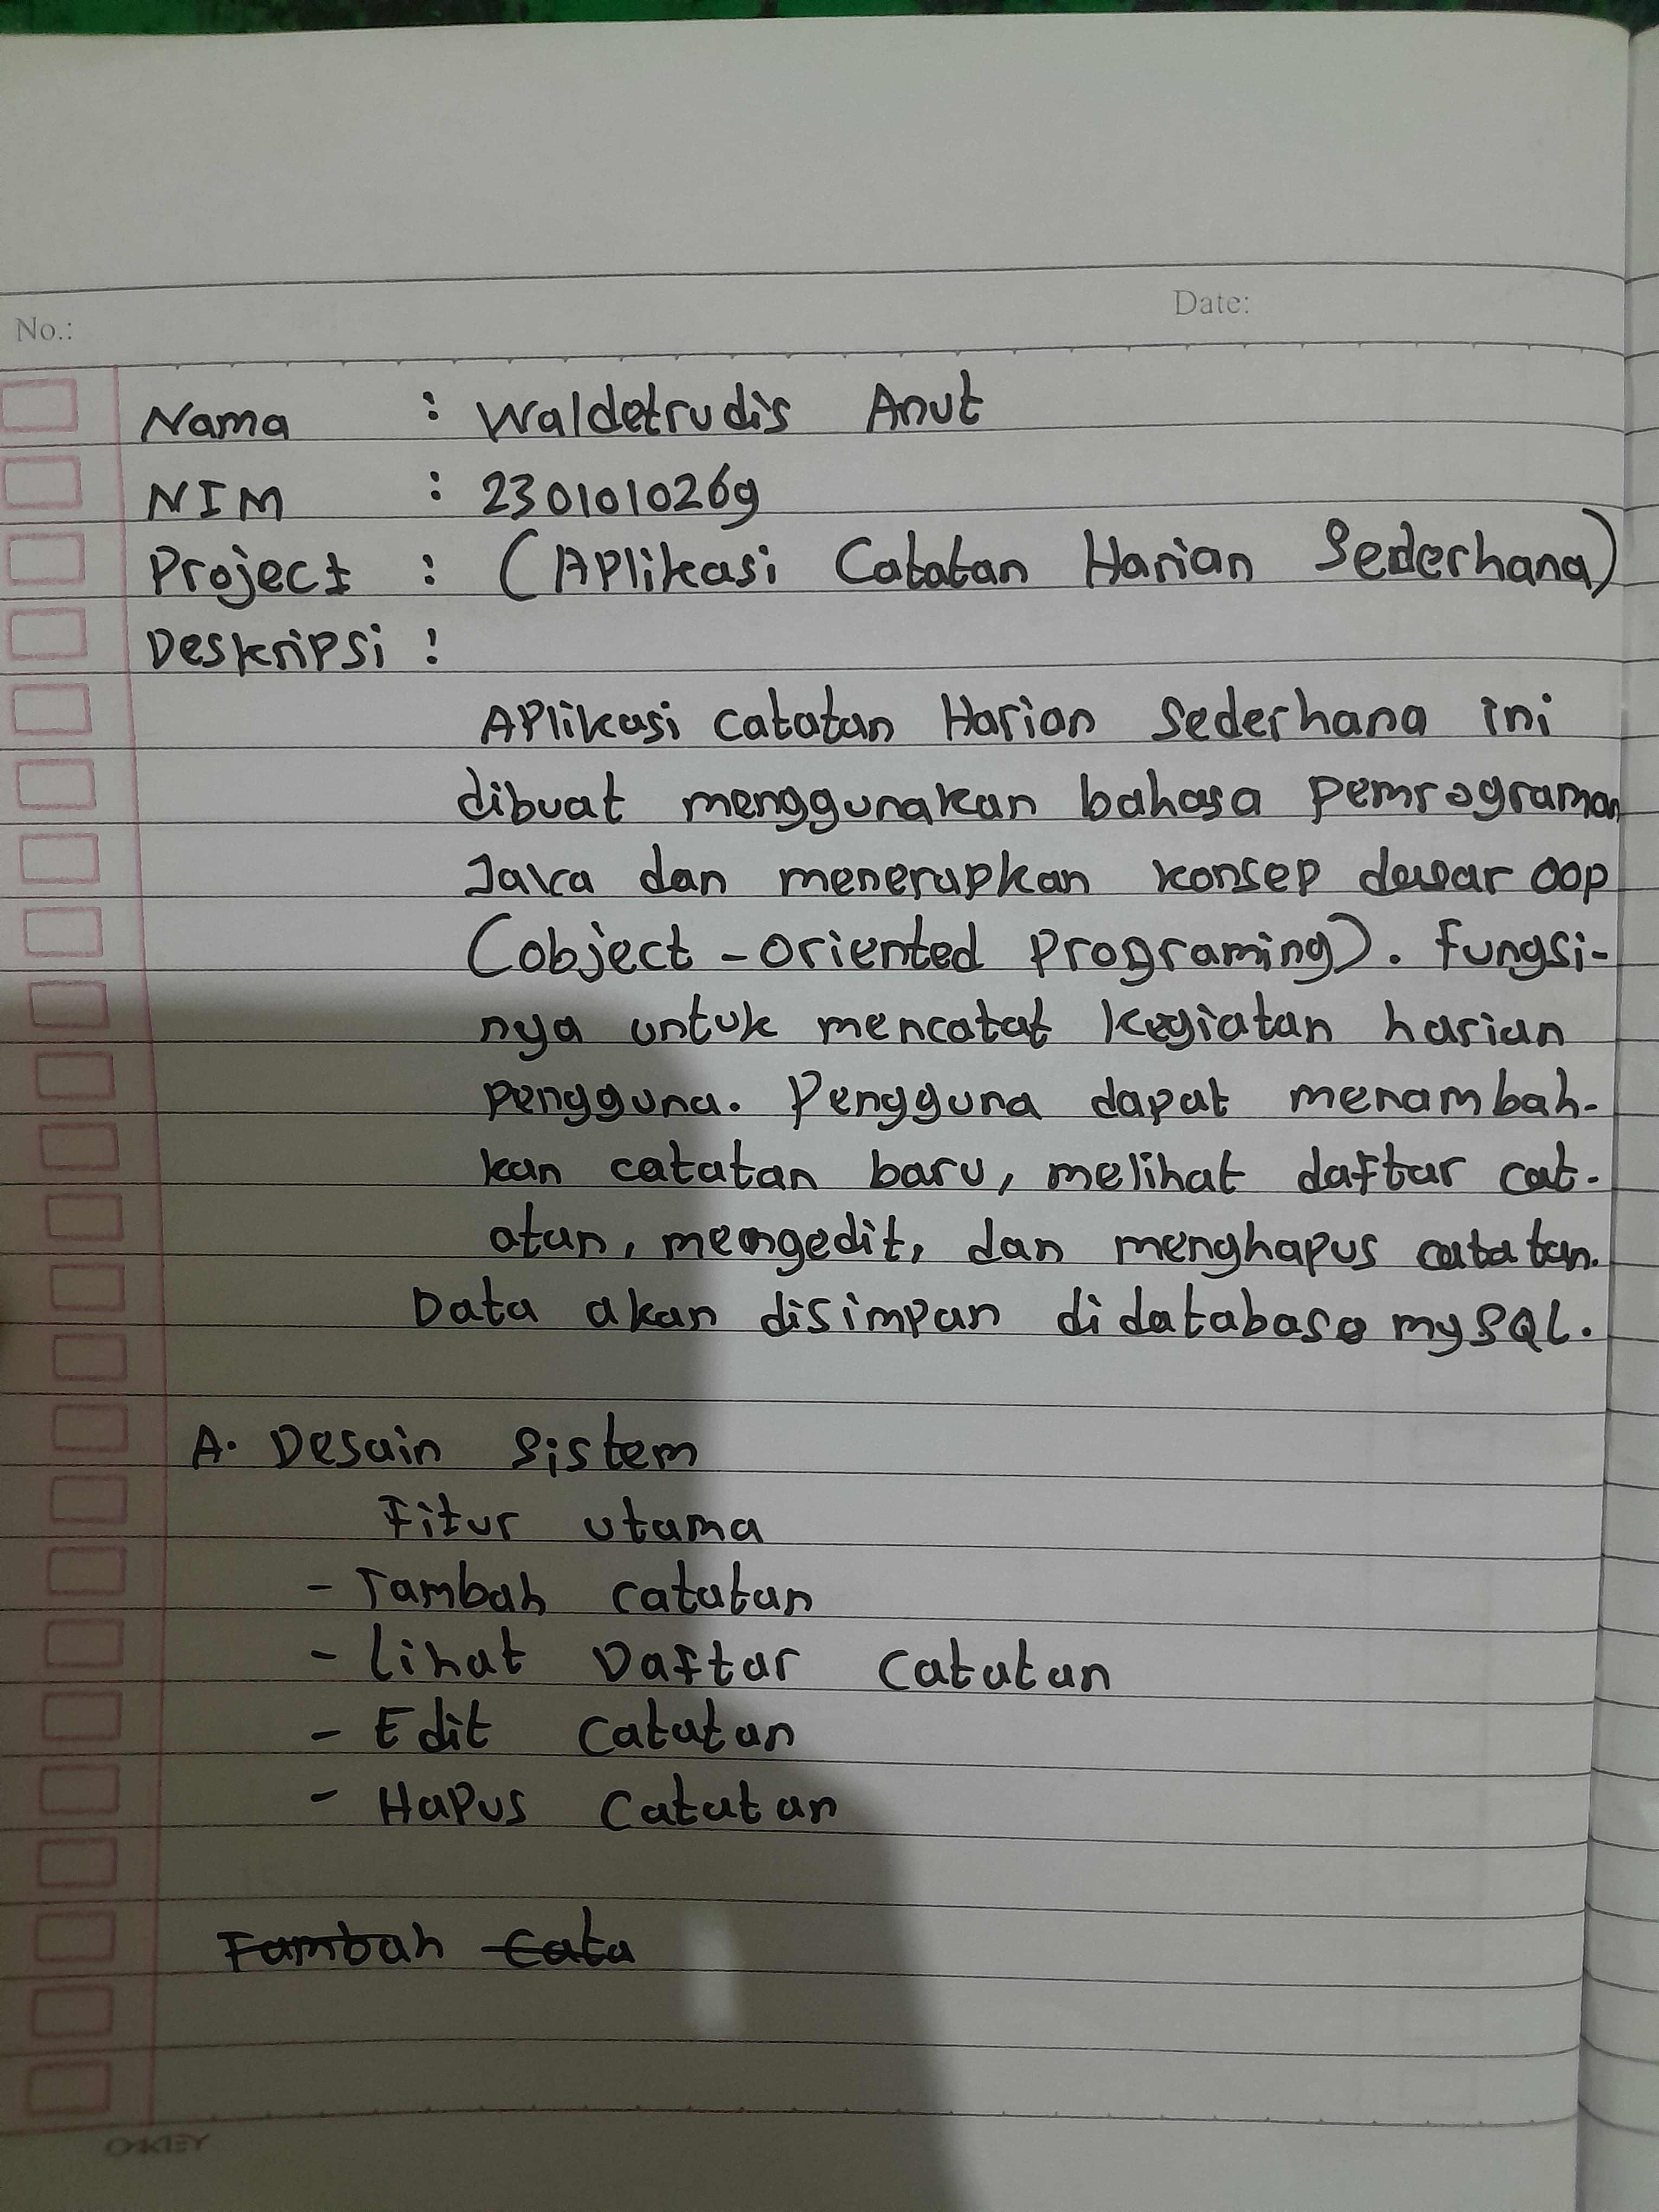 No.:
Date:
Nama : Waldetrudis Anut
NIM : 2301010269
Project : (Aplikasi Catatan Harian Sederhana)
Deskripsi :
Aplikasi catatan Harian Sederhana ini
dibuat menggunakan bahasa pemrograman
Java dan menerapkan konsep dasar OOP
(object - oriented programing). Fungsi-
nya untuk mencatat kegiatan harian
pengguna. Pengguna dapat menambah-
kan catatan baru, melihat daftar cat-
atan, mengedit, dan menghapus catatan.
Data akan disimpan di database mySQL.
A. Desain Sistem
Fitur utama
- Tambah catatan
- Lihat Daftar Catatan
- Edit Catatan
- Hapus Catatan
Tambah Cata
OAKLEY